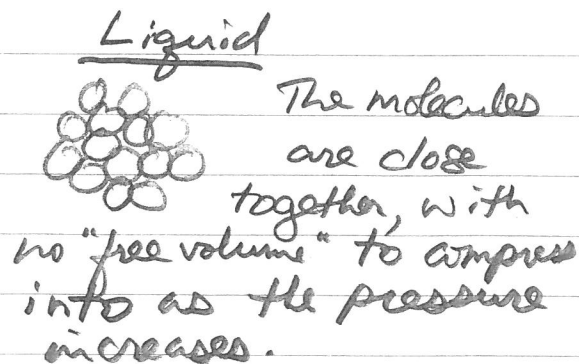 Liquid
The molecules
are close
together, with
no "free volume" to compress
into as the pressure
increases.